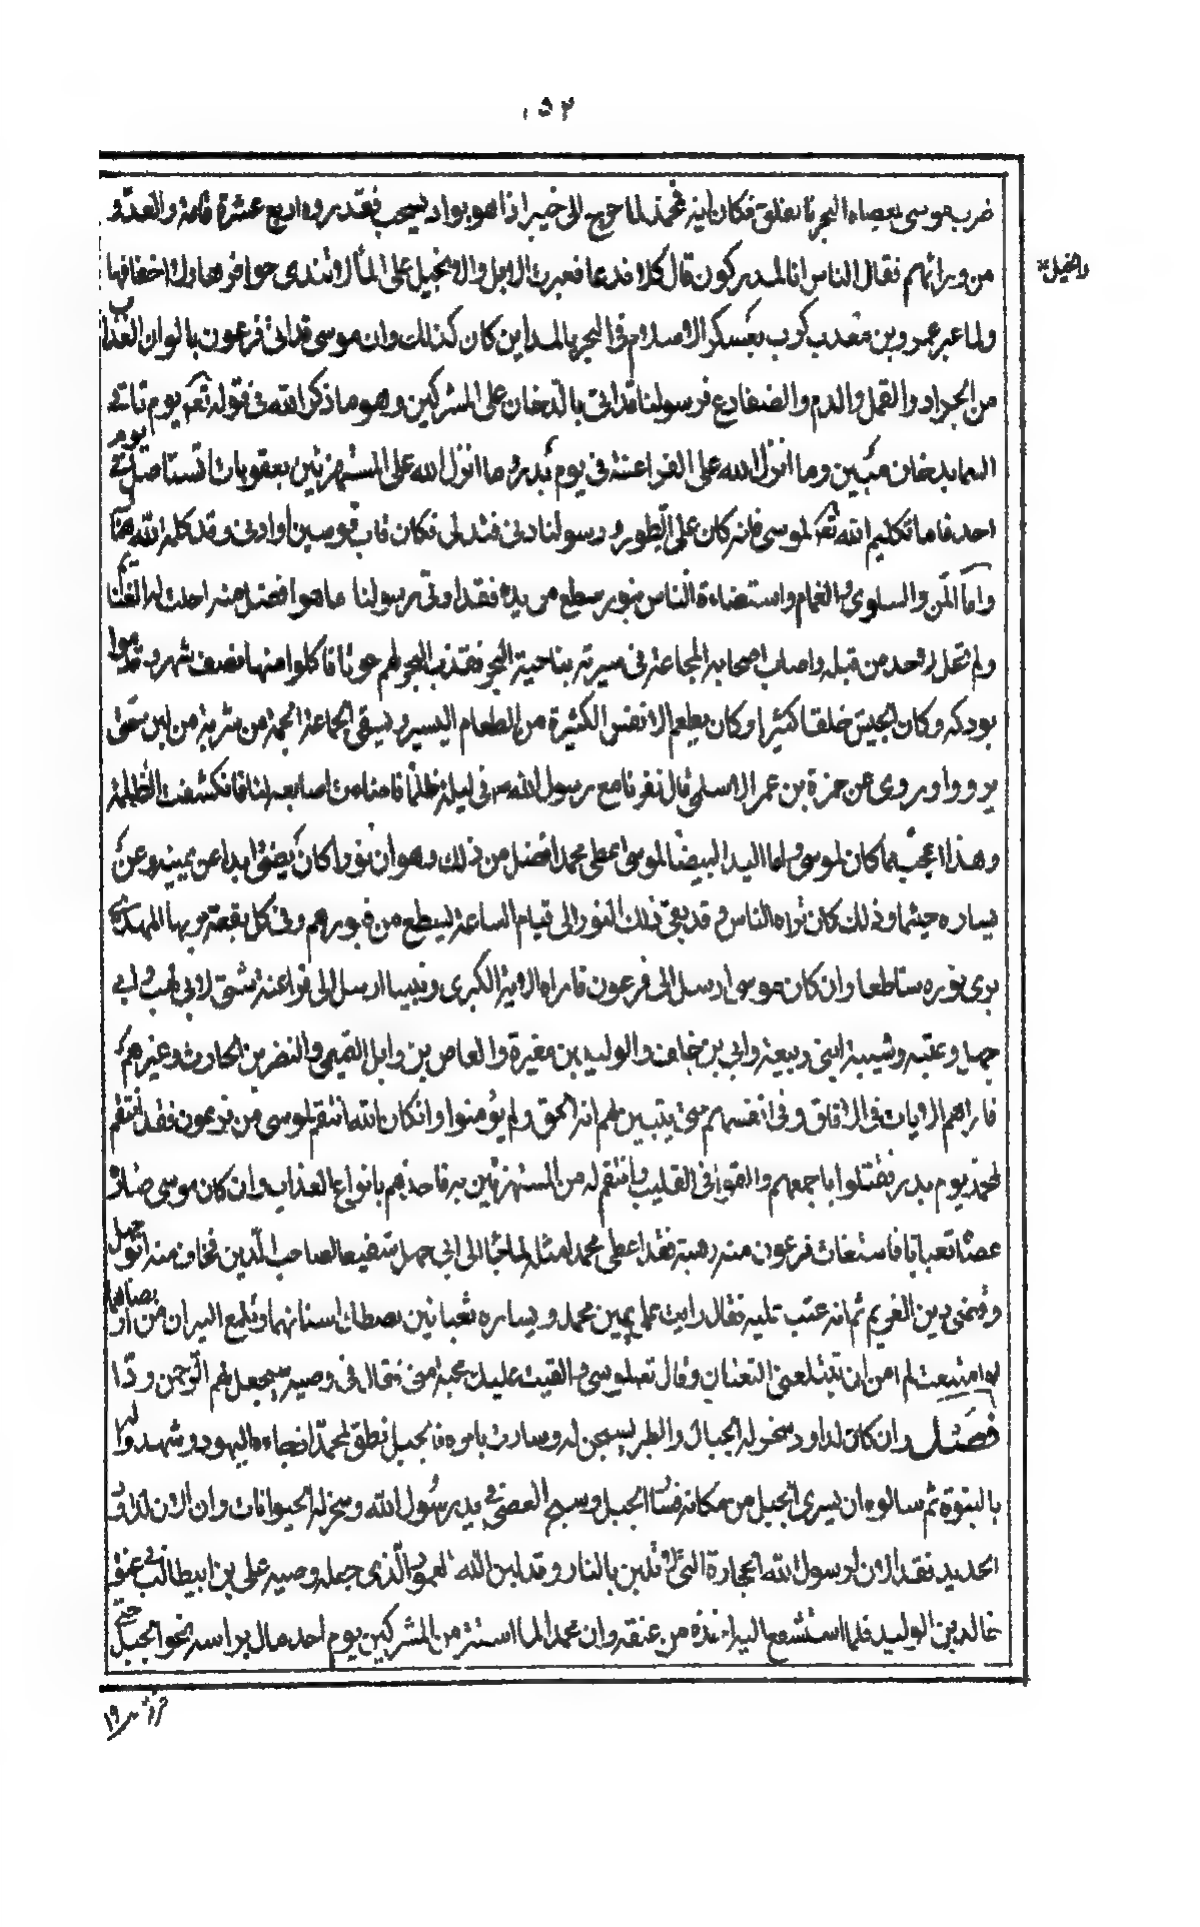 ١٥٢
ضرب موسى بعصاه البحر فانفلق فكان اية محمد لما خرج الى خيبر اذا هو بواد يشخب فقدروه اربع عشرة قامة والعدو
من ورائهم فقال الناس انا لمدركون قال كلا فدعا فعبرت الابل والخيل على الماء لا تندى حوافرها ولا اخفافها
والخيل
ولما عبر عمرو بن معديكرب بعسكر الاسلام فى البحر بالمداين كان كذلك وان موسى قد اتى فرعون بالوان العذاب
من الجراد والقمل والدم والضفادع فرسولنا قد اتى بالدخان على المشركين وهو ما ذكر الله فى قوله تعه يوم تاتى
السما بدخان مبين وما انزل الله على الفراعنة فى يوم بدر وما انزل الله على المستهزئين بعقوبات تستاصل فى يوم
احد فاما تكليم الله تعه لموسى فانه كان على الطور ورسولنا دنى فتدلى فكان قاب قوسين او ادنى وقد كلمه الله هناك
واما المن والسلوى والغمام واستضاءة الناس بنور سطع من يده فقد اوتى رسولنا ما هو افضل منه احلت له الغنائم
ولم تحل لاحد من قبله واصاب اصحابه المجاعة فى سرية بناحية البحر فقذف البحر لهم حوتا فاكلوا منها نصف شهر وقدموا
بودكه وكان الجيش خلقا كثيرا وكان يطعم الانفس الكثيرة من الطعام اليسير ويسقى الجماعة الجمة من شربة من لبن حتى
يرووا وروى عن حمزة بن عمر الاسلمى قال نفرنا مع رسول الله ص فى ليلة ظلما فاضاءت اصابعه لنا فانكشفت الظلمة
وهذا اعجب مما كان لموسى واما اليد البيضا لموسى اعطى محمد افضل من ذلك وهو ان نورا كان يضئ ابدا عن يمينه وعن
يساره حيثما وذلك كان تراه الناس وقد بقى ذلك النور الى قيام الساعة ليسطع من قبورهم وفى كل بقعة مر بها المهدى
يرى نوره ساطعا وان كان موسى ارسل الى فرعون فاراه الاية الكبرى ونبينا ارسل الى فراعنة شتى لابى لهب وابى
جهل وعتبة وشيبة ابنى ربيعة وابى بن خلف والوليد بن مغيرة والعاص بن وايل التميمى والنضر بن الحارث وغيرهم
فاراهم الايات فى الافاق وفى انفسهم حتى يتبين لهم انه الحق ولم يؤمنوا وان كان الله انتقم لموسى من فرعون فقد انتقم
لمحمد يوم بدر فقتلوا باجمعهم والقوا فى القليب وانتقم له من المستهزئين به فاخذهم بانواع العذاب وان كان موسى صارت
عصاه ثعبانا فاستغاث فرعون منه رهبة فقد اعطى محمد مثله لما جاء الى ابى جهل شفيعا لصاحب الدين فخاف منه ابو جهل
وقضى دين الغريم ثم انه عتب عليه فقال رايت على يمين محمد ويساره ثعبانين تصطك اسنانهما وتلمع النيران من ابصارهما
لو امتنعت لم امن ان يبتلعنى الثعبان وقال تعه لموسى والقيت عليك محبة منى فقال فى وصيه سيجعل لهم الرحمن ودا
فصل وان كان لداود سخر له الجبال والطير يسبحن له وسارت بامره فالجبل نطق لمحمد اذ جاءه اليهود وشهد له
بالنبوة ثم سالوه ان يسرى الجبل من مكانه فسار الجبل وسبح العصى فى يد رسول الله وسخر له الحيوانات وان الان لداود
الحديد فقد الان لرسول الله الحجارة التى لا تلين بالنار وقد لين الله العمود الذى جعله وصيه على بن ابيطالب فى عنق
خالد بن الوليد فلما استشفع اليه اخذه من عنقه وان محمدا لما استتر من المشركين يوم احد مال براسه نحو الجبل حتى